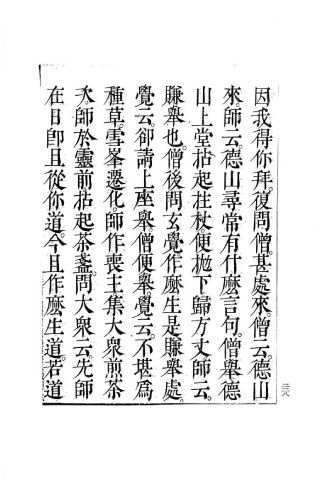 因我得你拜。復問僧。甚處來。僧云。德山
來師云。德山尋常有什麽言句。僧舉德
山上堂拈起拄杖便拋下歸方丈師云。
賺舉也。僧後問玄覺作麽生是賺舉處。
覺云。卻請上座舉僧便舉覺云。不堪為
種草。雪峯遷化。師作喪主集大衆煎茶
次。師於靈前拈起茶盞。問大衆云。先師
在日卽且從你道。今且作麽生道。若道
三六